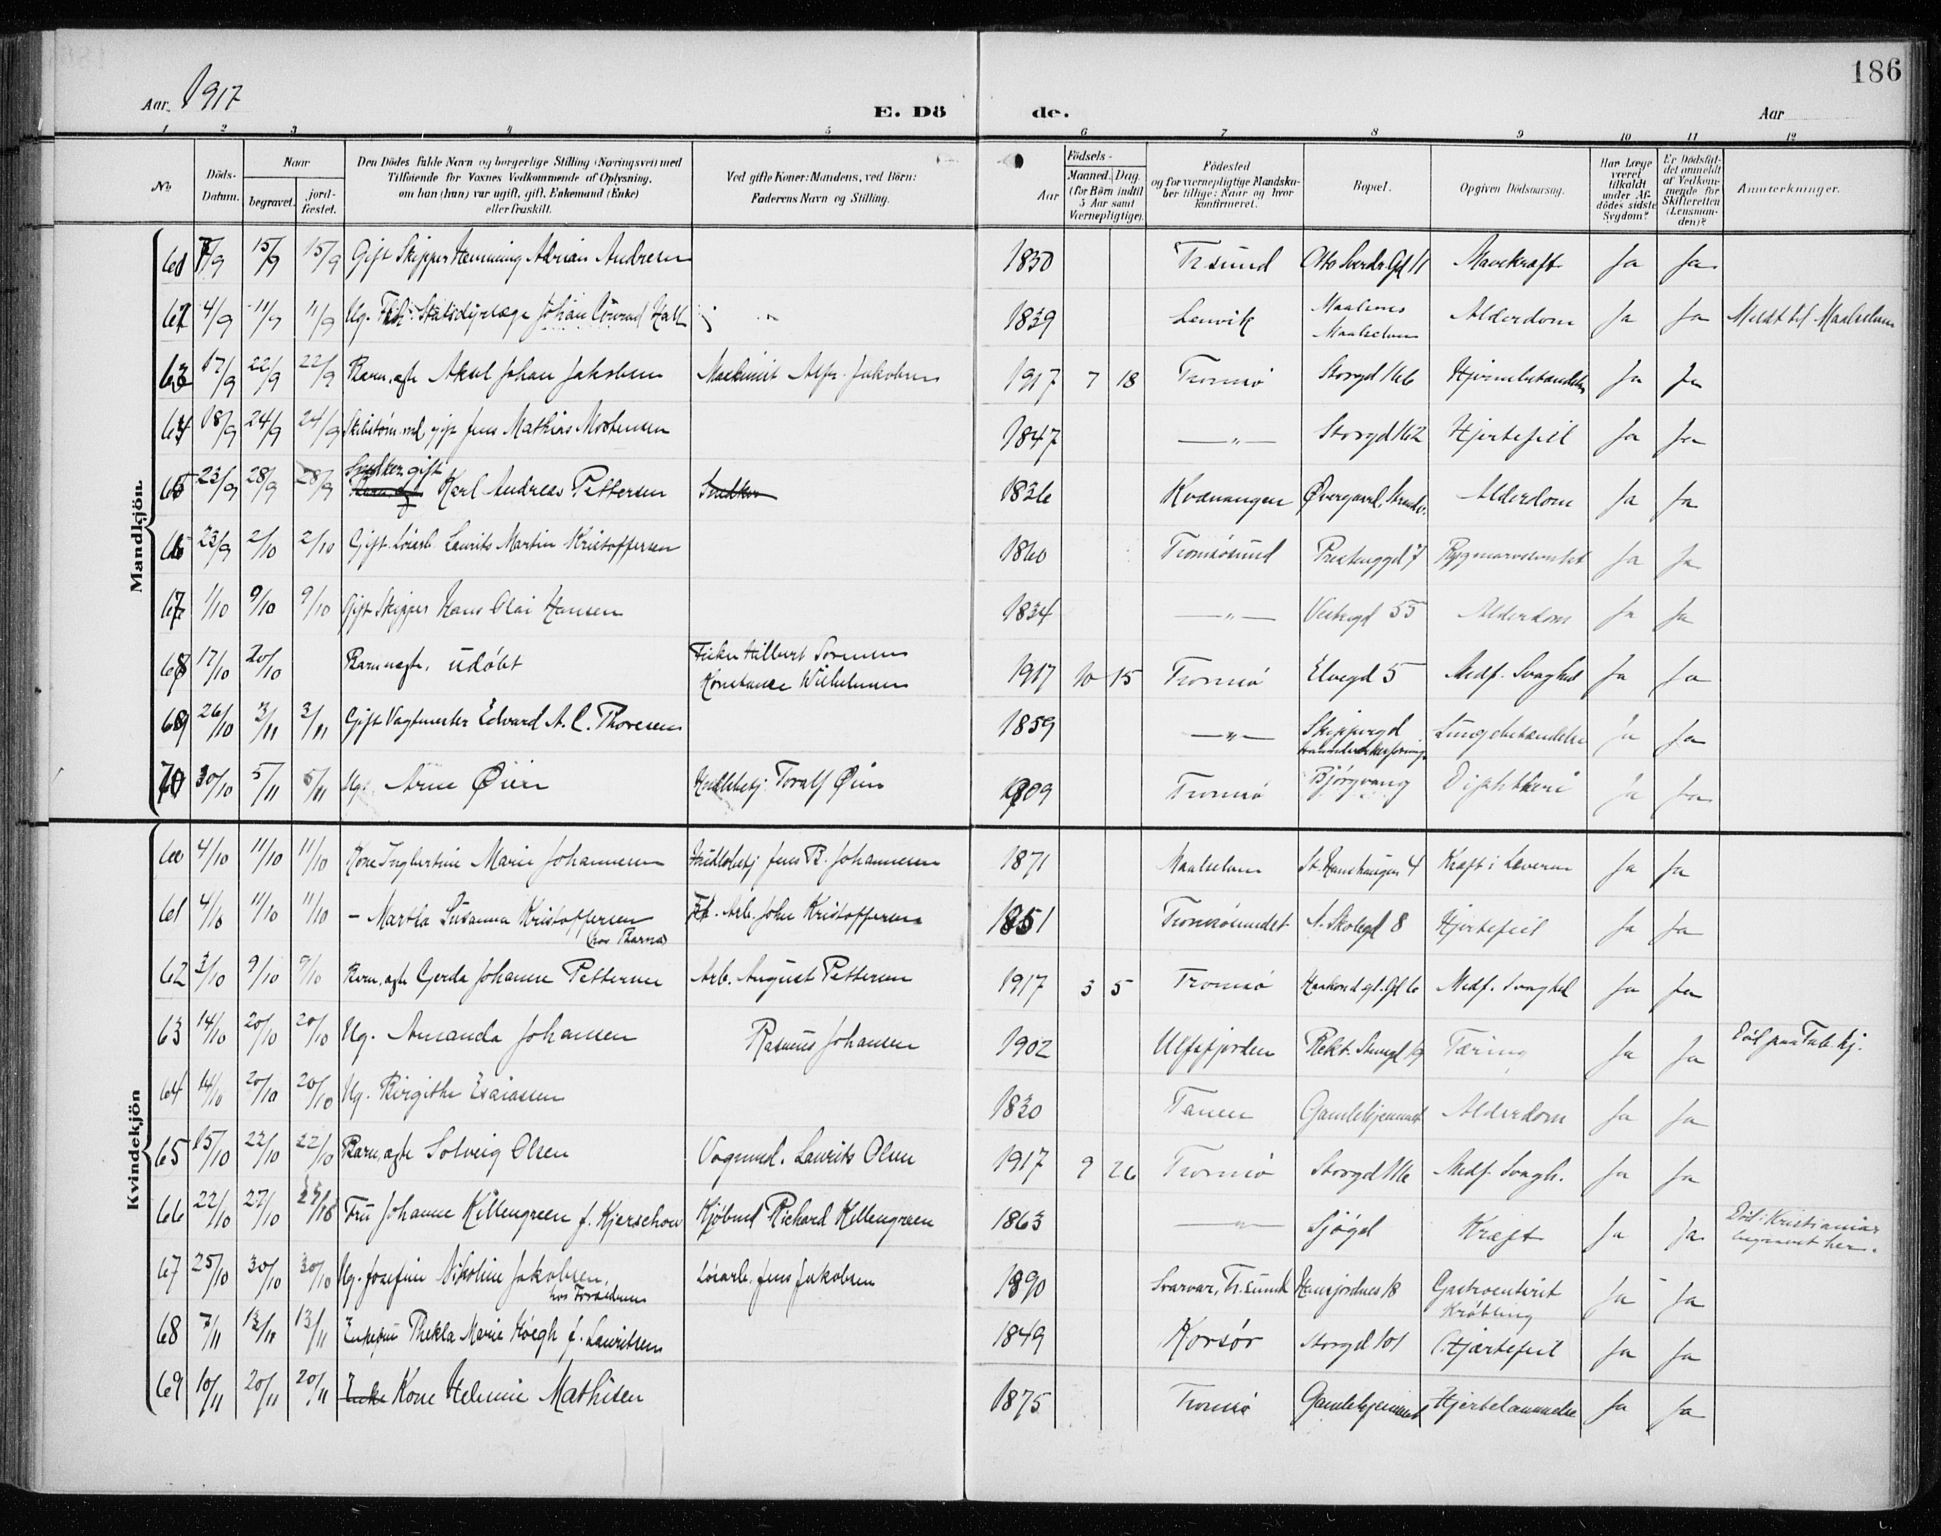 186
Aar 1917
E. Dö de.
Aar
1 2 3 4 5 6 7 8 9 10 11 12
No.
Döds-Datum.
Naar
begravet.
jord-fæstet.
Den Dödes fulde Navn og borgerlige Stilling (Næringsvei) med
Tilföiende for Voxnes Vedkommende af Oplysning,
om han (hun) var ugift, gift, Enkemand (Enke)
eller fraskilt.
Ved gifte Koner: Mandens, ved Börn:
Faderens Navn og Stilling.
Födsels-
Aar
Maaned. Dag.
(for Börn indtil
5 Aar samt
Værnepligtige).
Födested
og for værnepligtige Mandskaber tillige: Naar og hvor
konfirmeret.
Bopæl.
Opgiven Dödsaarsag.
Har Læge
været
tilkaldt
under Afdödes sidste
Sygdom?
Er Dödsfaldet anmeldt
af Vedkommende for
Skifteretten
(Lensmanden)?
Anmerkninger.
Mandkjön.
61 /9 15/9 15/9 Gift Skipper Hemming Adrian Andresen 1830 Tr.sund Otto Sverdr. Gd 11 Mavekræft Ja Ja
62 4/9 11/9 11/9 Ug. Statsdyrlæge Johan Conrad Holt 1839 Lenvik Maalsnes Maalselven Alderdom Ja Ja Meldt til Maalselven
63 17/9 22/9 22/9 Barn, ægte Aksel Johan Jakobsen Maskinist Alfr. Jakobsen 1917 7 18 Tromsø Storgd 116 Hjernebetændelse Ja Ja
64 18/9 24/9 24/9 gift Jens Mathias Mortensen 1847 —„— Storgd 162 Hjertefeil Ja Ja
65 23/9 28/9 28/9 Snedker, gift Karl Andreas Pettersen Snedker 1836 Kvænangen Øvergaard, Alderdom Ja Ja
66 23/9 2/10 2/10 Gift. Løsarb. Laurits Martin Kristoffersen 1860 Tromsøsund Prestenggd 7 Ja Ja
67 1/10 9/10 9/10 Gift Skipper Hans Olai Hansen 1834 —„— Vestregd 55 Alderdom Ja Ja
68 17/10 20/10 Barn uægte, udøbt Fisker Hilbert Sørensen Konstance Wilhelmsen 1917 10 15 Tromsø Elvegd 5 Medf. Svaghed Ja Ja
69 26/10 3/11 3/11 Gift Vagtmester Edvard A. C. Thoresen 1859 —„— Skippergd Lungebetændelse Ja Ja
70 30/10 5/11 5/11 Ug. Arne Øien Handelsbetj. Toralf Øien 1909 Tromsø Bjørgvang Diphtheri Ja Ja
Kvindekjön
60 4/10 11/10 11/10 Kone Ingbertine Marie Johannesen Handelsbetj Jens B. Johannesen 1871 Maalselven St. Hanshaugen 4 Kræft i Leveren Ja Ja
61 4/10 11/10 11/10 — Martha Susanna Kristoffersen Arb. John Kristoffersen 1851 Tromsøsundet N. Skolegd 8 Hjertefeil Ja Ja
62 3/10 9/10 9/10 Barn, ægte Gerda Johanne Pettersen Arb. August Pettersen 1917 3 5 Tromsø Haakon d gl. Gd 6 Medf. Svaghed Ja Ja
63 14/10 20/10 20/10 Ug. Amanda Johansen Rasmus Johansen 1902 Ulfsfjorden Rekt. Steengd 19 Tæring Ja Ja Død paa Tub. hj.
64 14/10 20/10 20/10 Ug. Birgithe Esaiasen 1830 Tanen Gamlehjemmet Alderdom Ja Ja
65 15/10 22/10 22/10 Barn, ægte Solveig Olsen Vognmd. Laurits Olsen 1917 9 26 Tromsø Storgd 116 Medf. Svagh. Ja Ja
66 22/10 27/10 27/10 Fru Johanne Killengreen f. Kjerschow Kjøbmd Richard Killengreen 1863 —„— Sjøgd Kræft Ja Ja Død i Kristiania begravet her.
67 25/10 30/10 30/10 Ug. Josefine Nikoline Jakobsen, Løsarb. Jens Jakobsen 1890 Svarvar, Tr.sund Hansjordnes 18 Gastroenterit Krøbling Ja Ja
68 7/11 13/11 13/11 Enkefru Thekla Marie Høegh f. Lauritsen 1849 Korsør Storgd 101 Hjertefeil Ja Ja
69 10/11 20/11 20/11 Enke Kone Helmine Mathisen 1875 Tromsø Gamlehjemmet Hjertelammelse Ja Ja